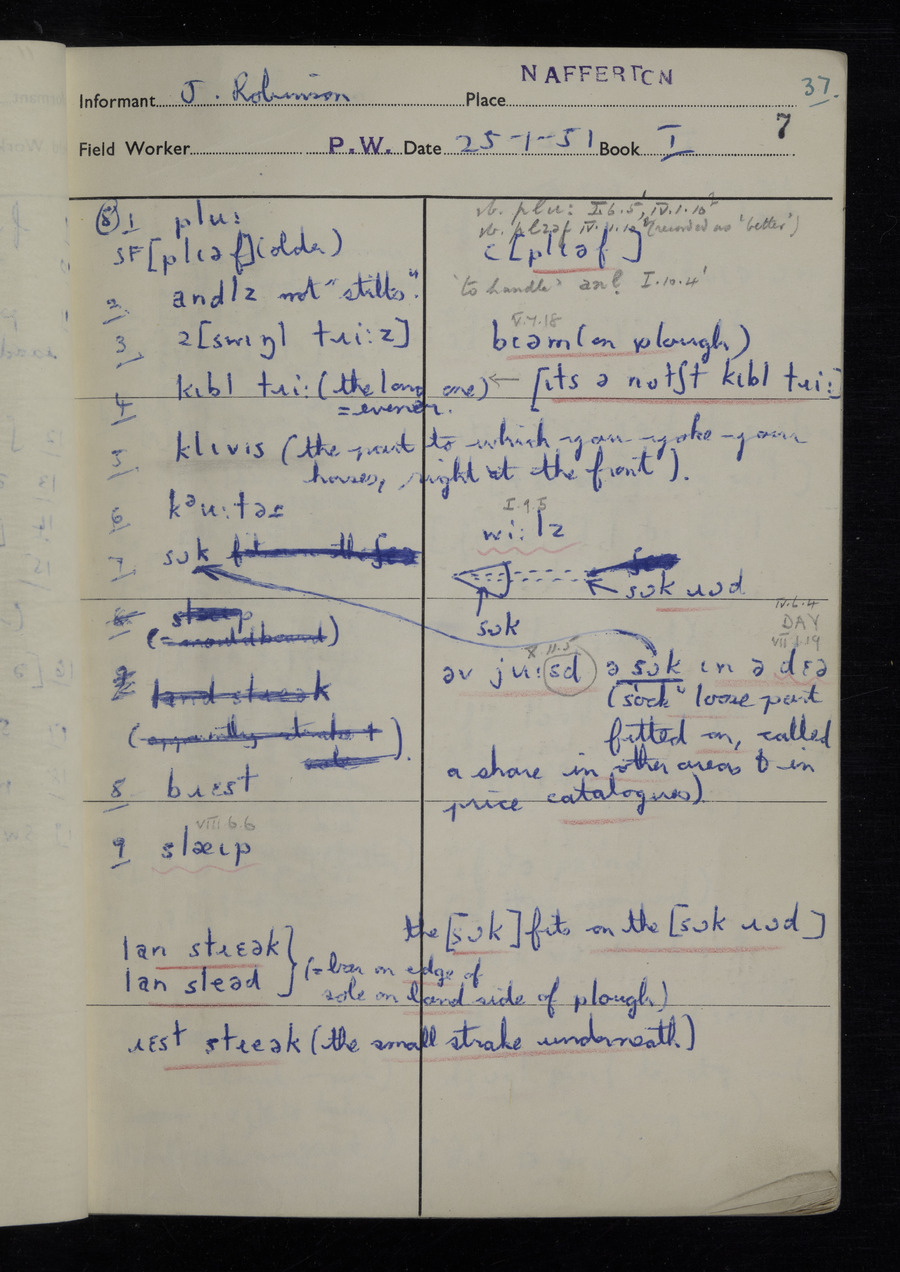 NAFFERTON
37.
Informant J. Robinson Place
7
Field Worker P.W. Date 25-1-51 Book I
(8) 1 plu:
SF [plɪəf] (older)
2 andlz not "stilts".
3 z[swɪŋl tɹi:z]
4 kɪbl tɹi: (the long one)
= evener.
5 klɪvɪs (the part to which you yoke your
horses, right at the front).
6 kəu:təɹ
7 sʊk
8 bɹɛst
VIII 6.6
9 slæɪp
lan stɹɛak
lan slead
(= bar on edge of
sole on land side of plough)
ɹɛst stɹɛak (the small strake underneath)
vb. plu: I.6.5, IV.1.10
vb. plɪəf IV.1.10 (recorded as 'better')
c [plɪəf]
'to handle' anl I.10.4
V.7.18
bɪəm (on plough)
← [ɪts ə nɒtʃt kɪbl tɹi:]
I.9.5
wi:lz
sʊk ɹʊd
sʊk
IV.6.4
DAY
VII.1.19
X.11.5
av jʊ:sd ə sʊk ɪn ə dɛə
("sock" loose part
fitted on, called
a share in other areas & in
price catalogues).
the [sʊk] fits on the [sʊk ɹʊd]